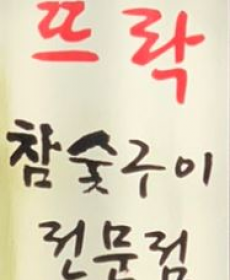 뜨락
참숯구이
전문점